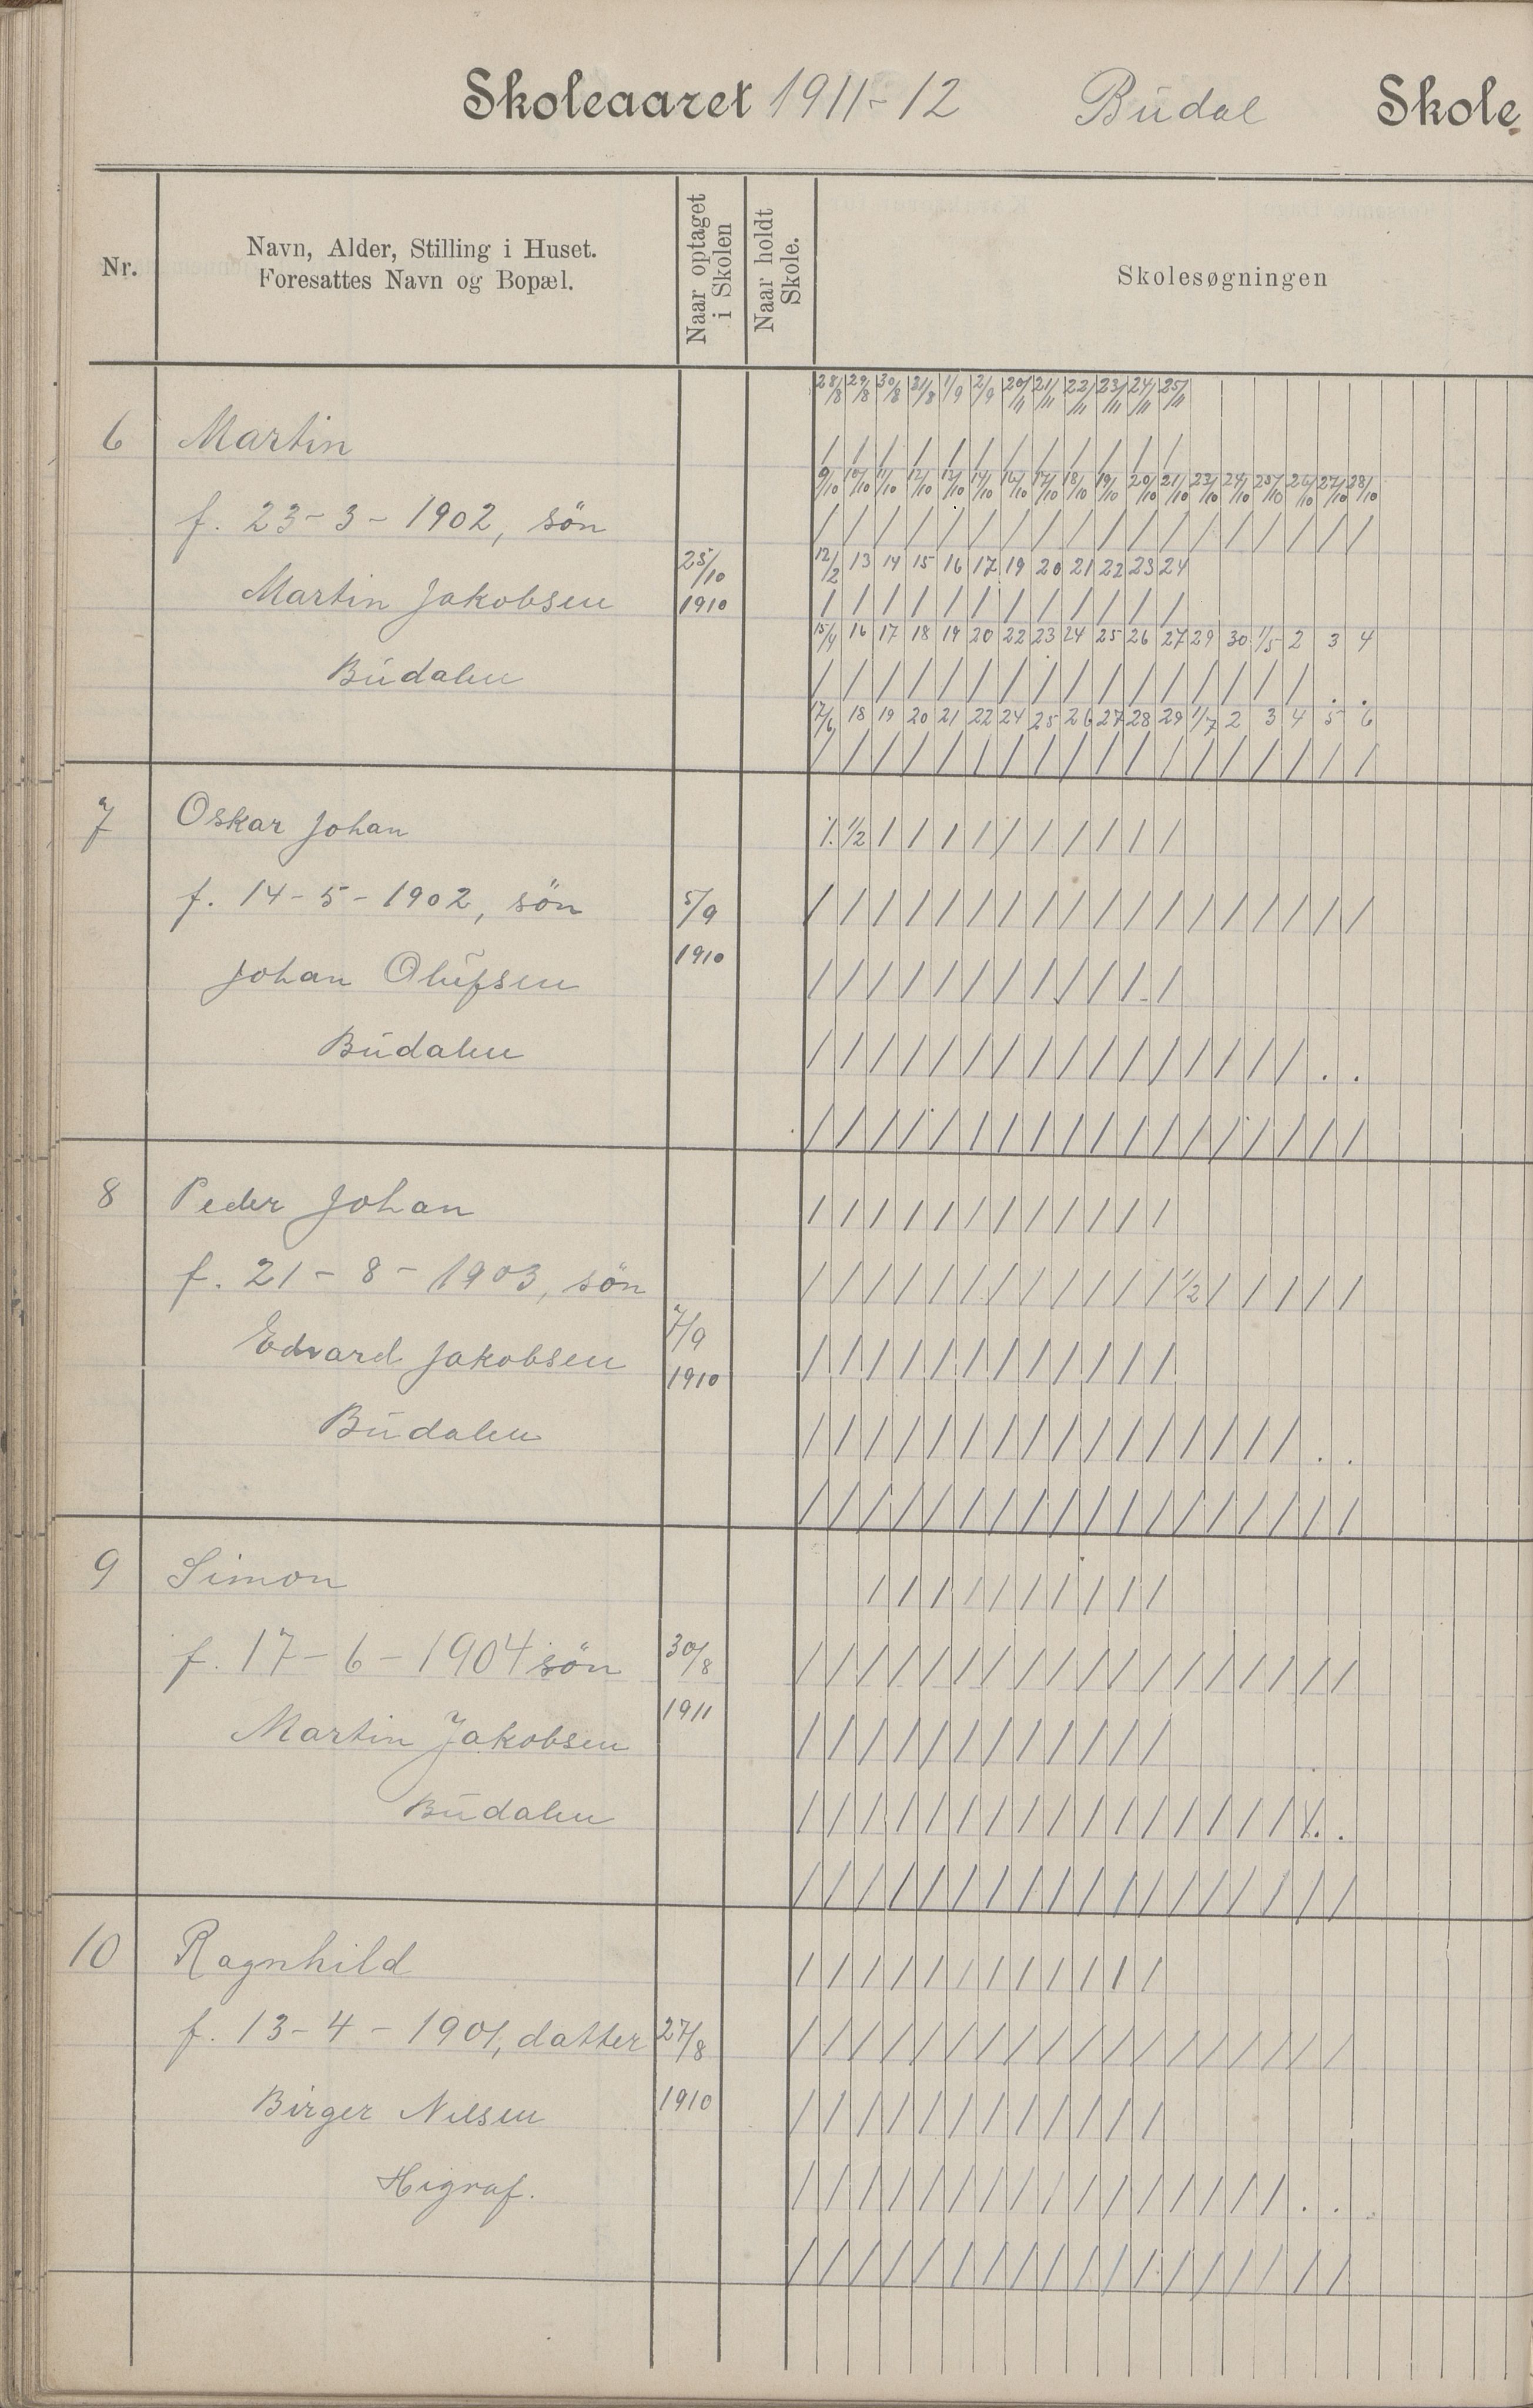 Skoleaaret 1911-12 Budal Skole.
Nr.
Navn, Alder, Stilling i Huset.
Foresattes Navn og Bopæl.
Naar optaget
i Skolen
Naar holdt
Skole.
Skolesøgningen
28/8 29/8 30/8 31/8 1/9 2/9 20/11 21/11 22/11 23/11 24/11 25/11
6 Martin / / / / / / / / / / / /
9/10 10/10 11/10 12/10 13/10 14/10 16/10 17/10 18/10 19/10 20/10 21/10 23/10 24/10 25/10 26/10 27/10 28/10
f. 23-3-1902, sön / / / / / / / / / / / / / / / / / /
25/10 12/2 13 14 15 16 17 19 20 21 22 23 24
Martin Jakobsen 1910 / / / / / / / / / / / /
15/4 16 17 18 19 20 22 23 24 25 26 27 29 30 1/5 2 3 4
Budalen / / / / / / / / / / / / / / / / . .
17/6 18 19 20 21 22 24 25 26 27 28 29 1/7 2 3 4 5 6
/ / / / / / / / / / / / / / / / / /
7 Oskar Johan /. 1/2 / / / / / / / / / /
f. 14-5-1902, sön 5/9 / / / / / / / / / / / / / / / / / /
1910
Johan Olufsen / / / / / / / / / / / /
Budalen / / / / / / / / / / / / / / / / . .
/ / / / / / / / / / / / / / / / / /
8 Peder Johan / / / / / / / / / / / /
f. 21-8-1903, sön / / / / / / / / / / / / 1/2 / / / / /
7/9
Edvard Jakobsen 1910 / / / / / / / / / / / /
Budalen / / / / / / / / / / / / / / / / . .
/ / / / / / / / / / / / / / / / / /
9 Simon / / / / / / / / / /
f. 17-6-1904 sön 30/8 / / / / / / / / / / / / / / / / / /
1911
Martin Jakobsen / / / / / / / / / / / /
Budalen / / / / / / / / / / / / / / / / /. .
/ / / / / / / / / / / / / / / / / /
10 Ragnhild / / / / / / / / / / / /
f. 13-4-1901, datter 27/8 / / / / / / / / / / / / / / / / / /
1910
Birger Nilsen / / / / / / / / / / / /
Higraf. / / / / / / / / / / / / / / / / . .
/ / / / / / / / / / / / / / / / / /